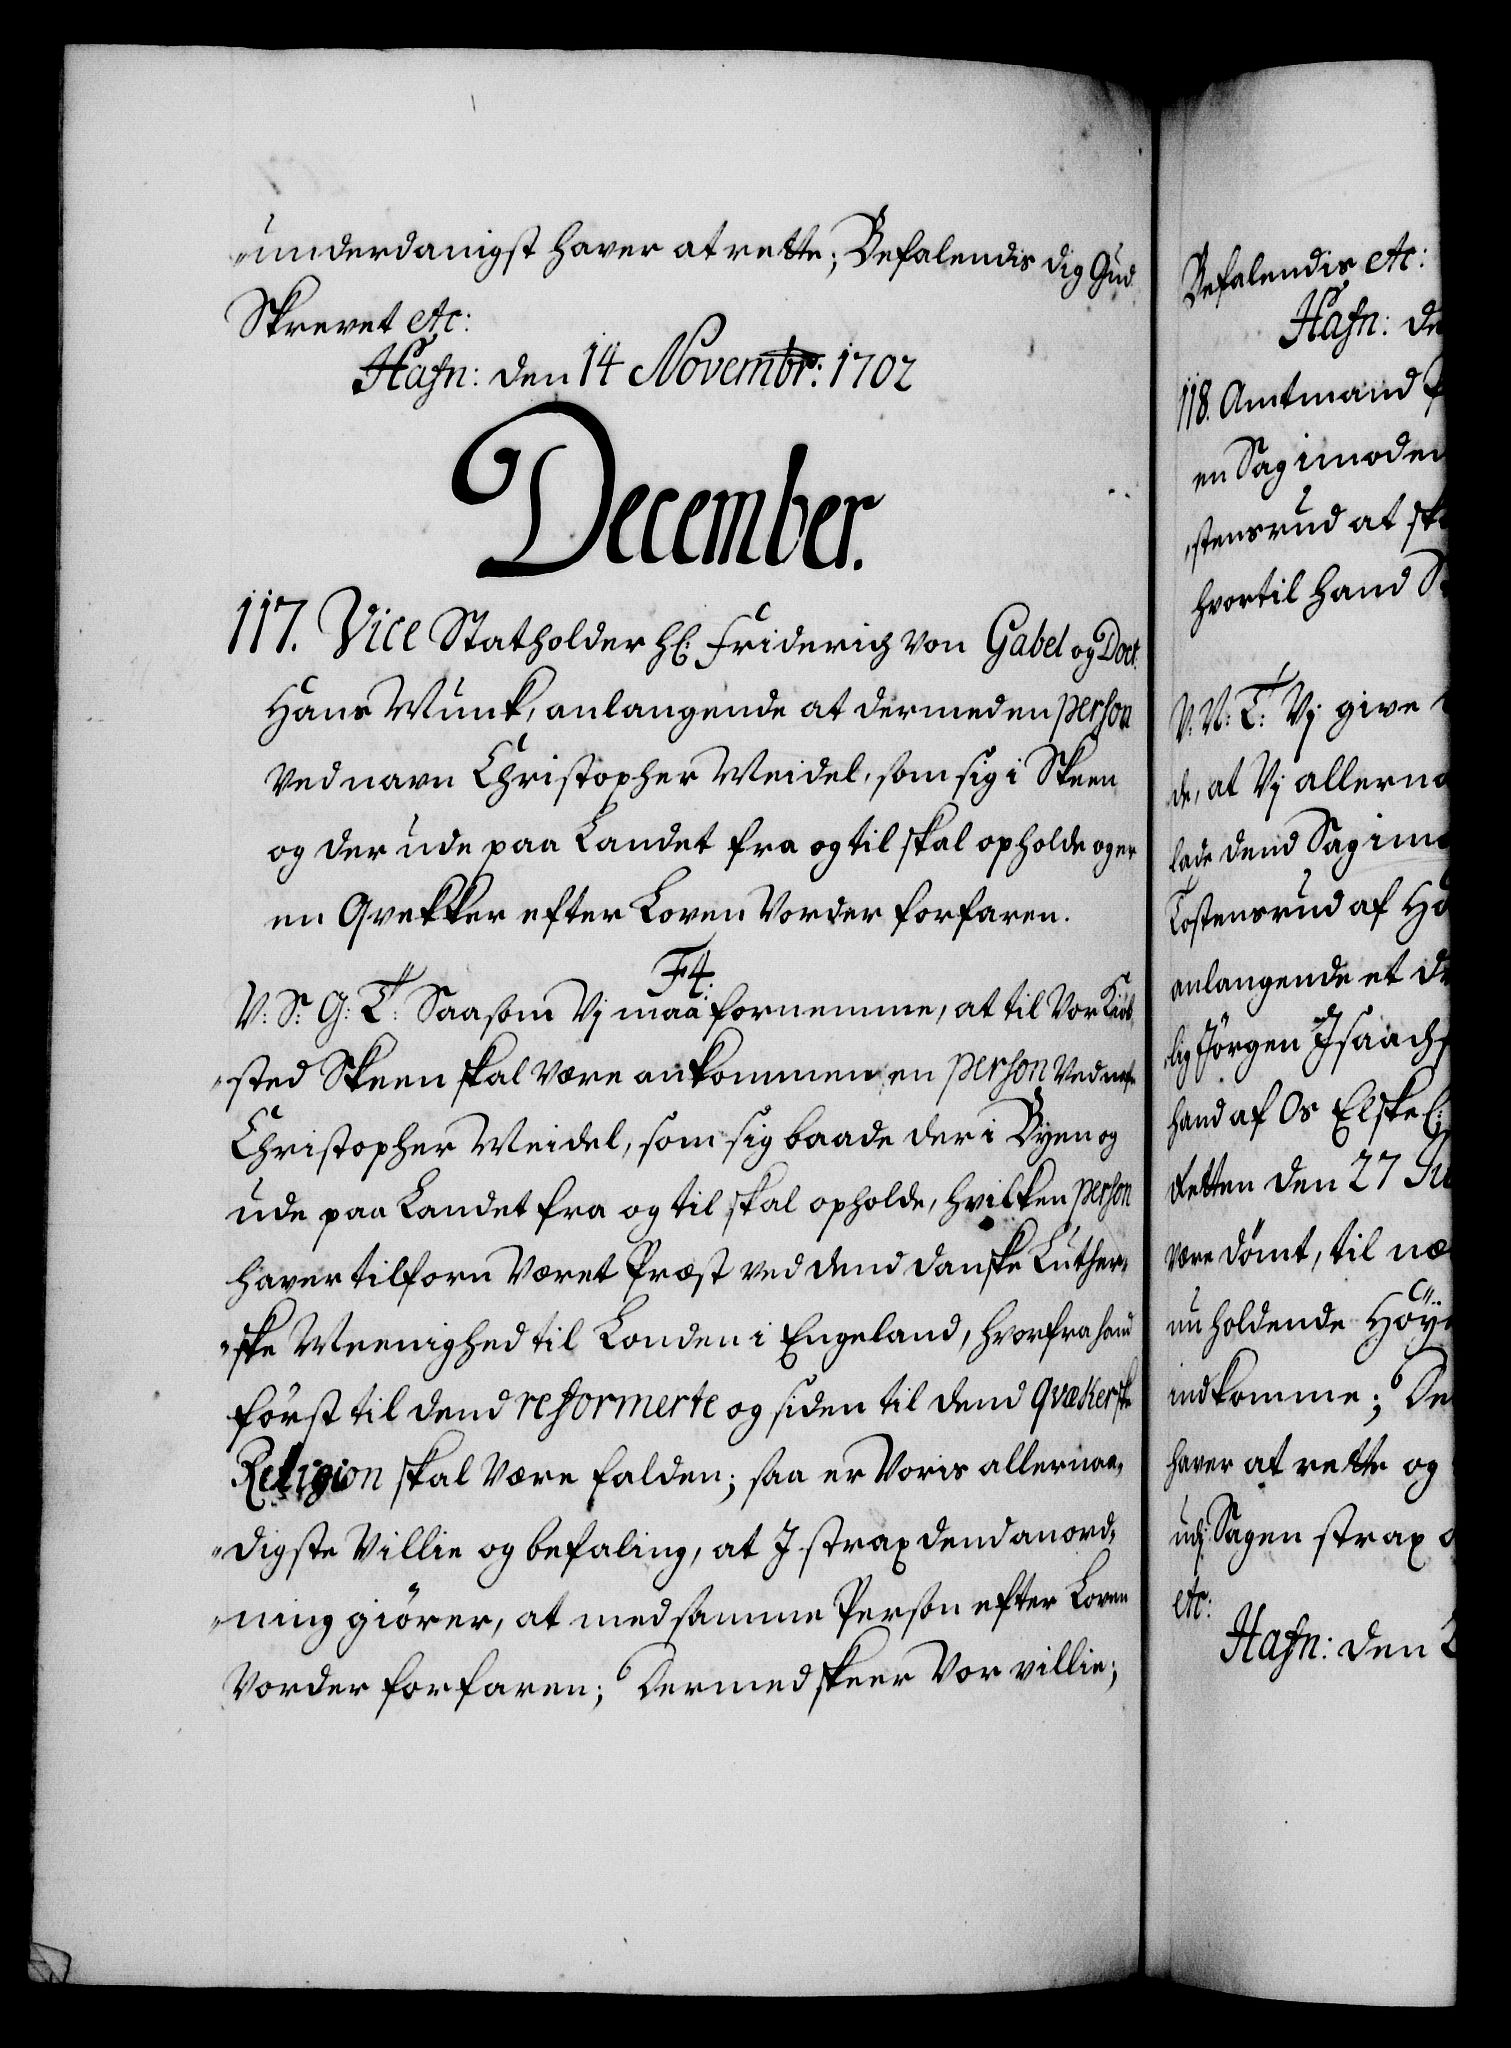 underdanigst haver at rette; Befalendis dig Gud
Skrevet etc:
Hafn: den 14 Novembr: 1702
December.
117. Vice Statholder Hl: Friderich von Gabel og Doct.
Hans Munk, anlangende at dermed en person
ved navn Christopher Meidel, som sig i Skeen
og der ude paa Landet fra og til skal opholde og er
en Qvekker efter Loven vorder forfaren.
F4.
V: S: G: T: Saasom Vj maa fornemme, at til Vor Kiøb,
sted Skeen skal være ankommen en person ved nafn
Christopher Meidel, som sig baade der i Byen og
ude paa Landet fra og til skal opholde, hvilken person
haver tilforn været Præst ved dend danske Luther,
ske Meenighed til Londen i Engeland, hvorfra hand
først til dend reformerte og siden til dend qvækerske
Religion skal være falden; saa er Voris allernaa,
digste Villie og befaling, at J strax dend anord,
ning giører, at med samme Person efter Loven
vorder forfaren; Dermed skeer Vor villie;
Befalendis etc:
Hafn: de
118. Amtmand
en Sag imoden
stensrud at sk
hvortil hand
V: N: T: Vj give
de, at Vj allerna
lade dend Sag imo
Tostensrud af
anlangende et
lig Jørgen Isaachs
hand af Os Elskel:
Retten den 27
være dømt, til næ
nu holdende Høye
indkomme;
haver at rette og
udj Sagen strax
etc:
Hafn: den